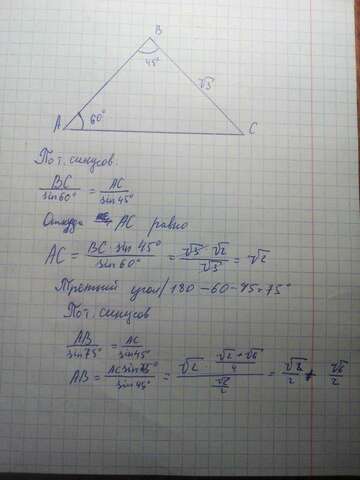 B
45°
√3
A 60° C
По т. синусов.
BC/sin60° = AC/sin45°
Откуда AC равно
AC = BC sin 45°/sin 60° = √3 √2/√3 = √2
Третий угол 180-60-45=75°
По т. синусов
AB/sin75° = AC/sin45°
AB = AC sin75°/sin45° = (√2 (√2+√6)/4)/(√2/2) = √2/2 + √6/2